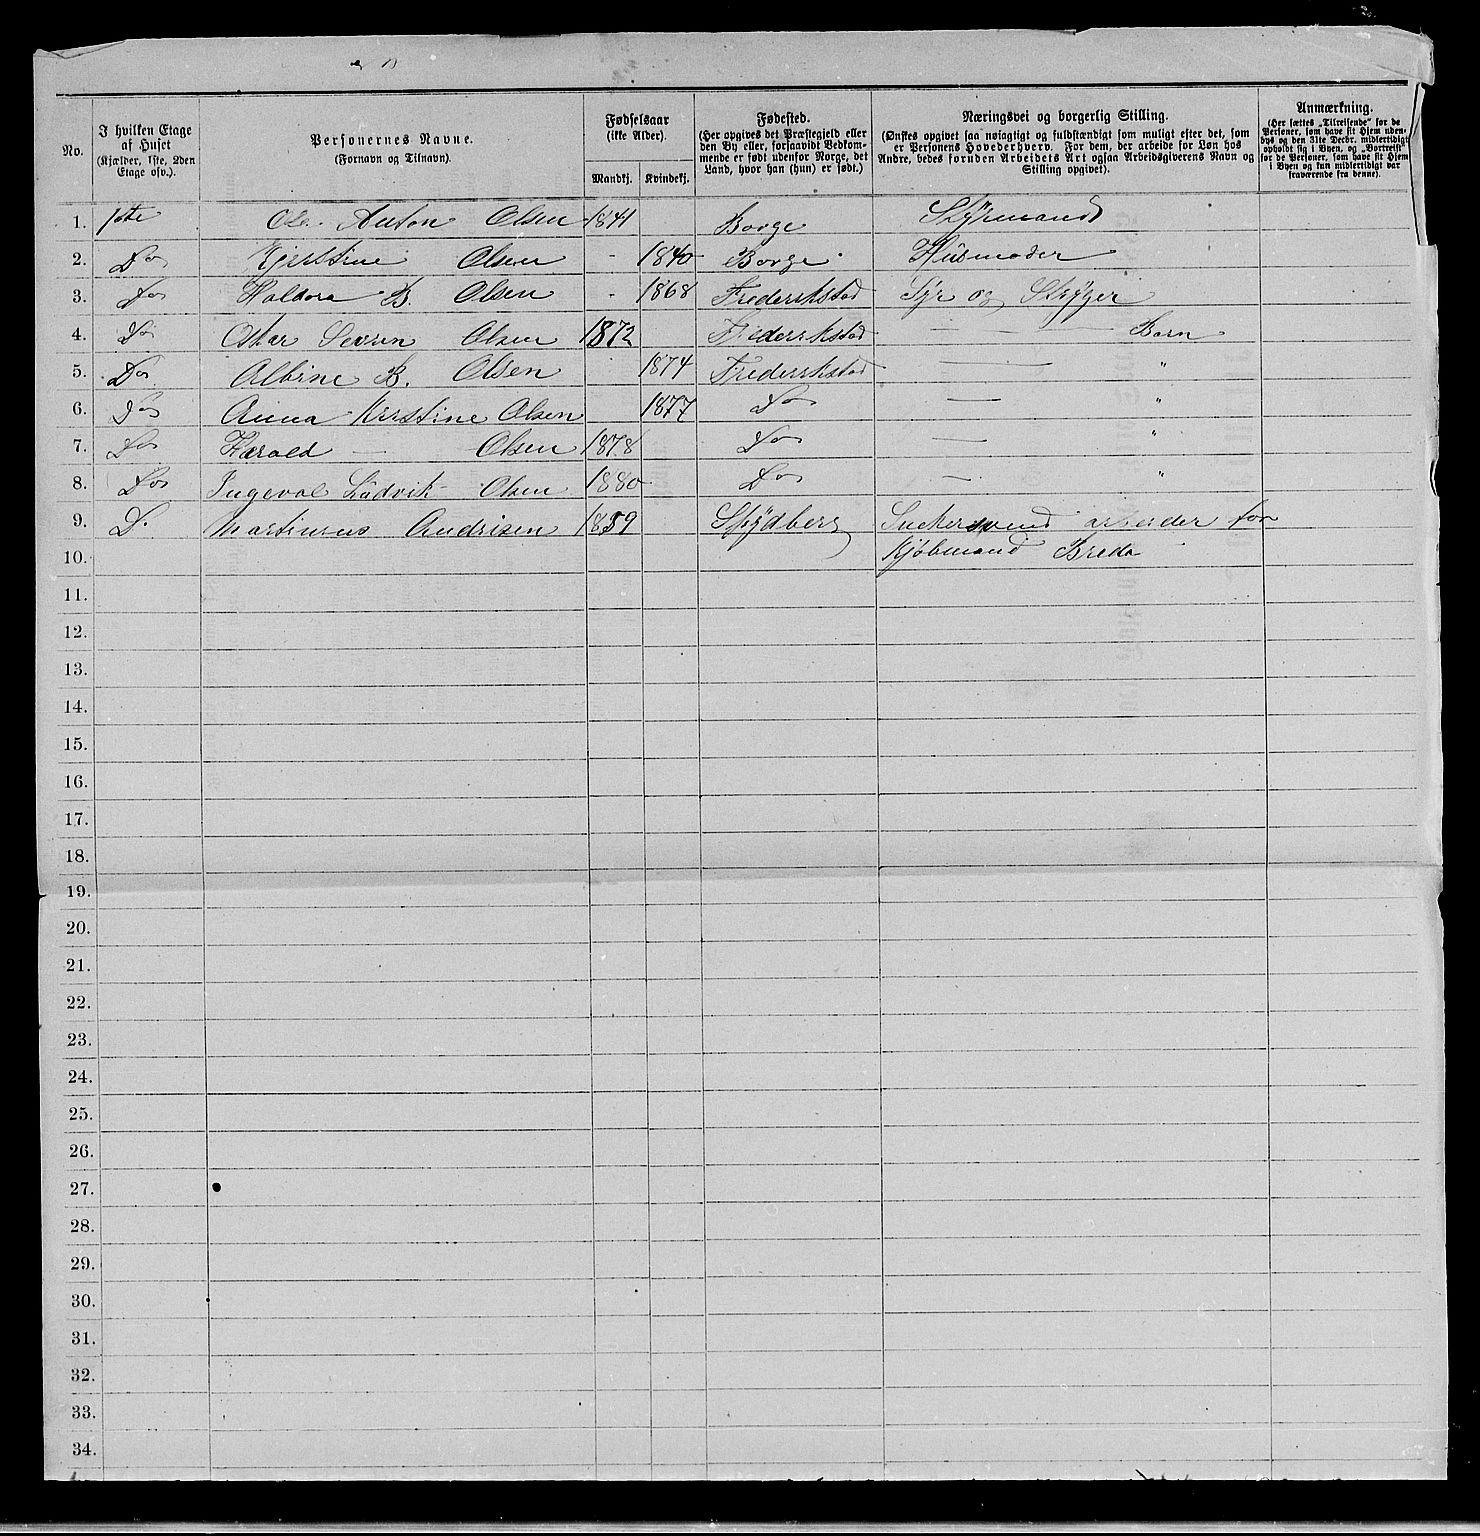 No.
I hvilken Etage
af Huset
(Kjælder, 1ste, 2den
Etage osv.).
Personernes Navne.
(Fornavn og Tilnavn).
Fødselsaar
(ikke Alder).
Mandkj. Kvindekj.
Fødested.
(Her opgives det Præstegjeld eller
den By eller, forsaavidt Vedkom-
mende er født udenfor Norge, det
Land, hvor han (hun) er født.)
Næringsvei og borgerlig Stilling.
(Ønskes opgivet saa nøiagtigt og fuldstændigt som muligt efter det, som
er Personens Hovederhverv. For dem, der arbeide for Løn hos
Andre, bedes foruden Arbeidets Art ogsaa Arbeidsgiverens Navn og
Stilling opgivet).
Anmærkning.
(Her sættes „Tilreisende" for de
Personer, som have sit Hjem uden-
bys og den 31te Decbr. midlertidigt
opholdt sig i Byen, og „Bortreist"
for de Personer, som have sit Hjem
i Byen og kun midlertidigt var
fraværende fra denne).
1. 1ste Ole Anton Olsen 1841 Borge Styrmand
2. Do Kjerstine Olsen - 1840 Borge Husmoder
3. Do Haldora B. Olsen - 1868 Frederikstad Syr og Stryger
4. Do Oskar Sevrin Olsen 1872 Frederikstad — — — Barn
5. Do Albine B. Olsen 1874 Frederikstad — — "
6. Do Anna Kristine Olsen 1877 Do — "
7. Do Harold — Olsen 1878 Do — "
8. Do Ingeval Ludvik Olsen 1880 Do — "
9. D. Martinus Andrisen 1859 Spydberg arbeider for
10. Kjøbmand Breda
11.
12.
13.
14.
15.
16.
17.
18.
19.
20.
21.
22.
23.
24.
25.
26.
27.
28.
29.
30.
31.
32.
33.
34.